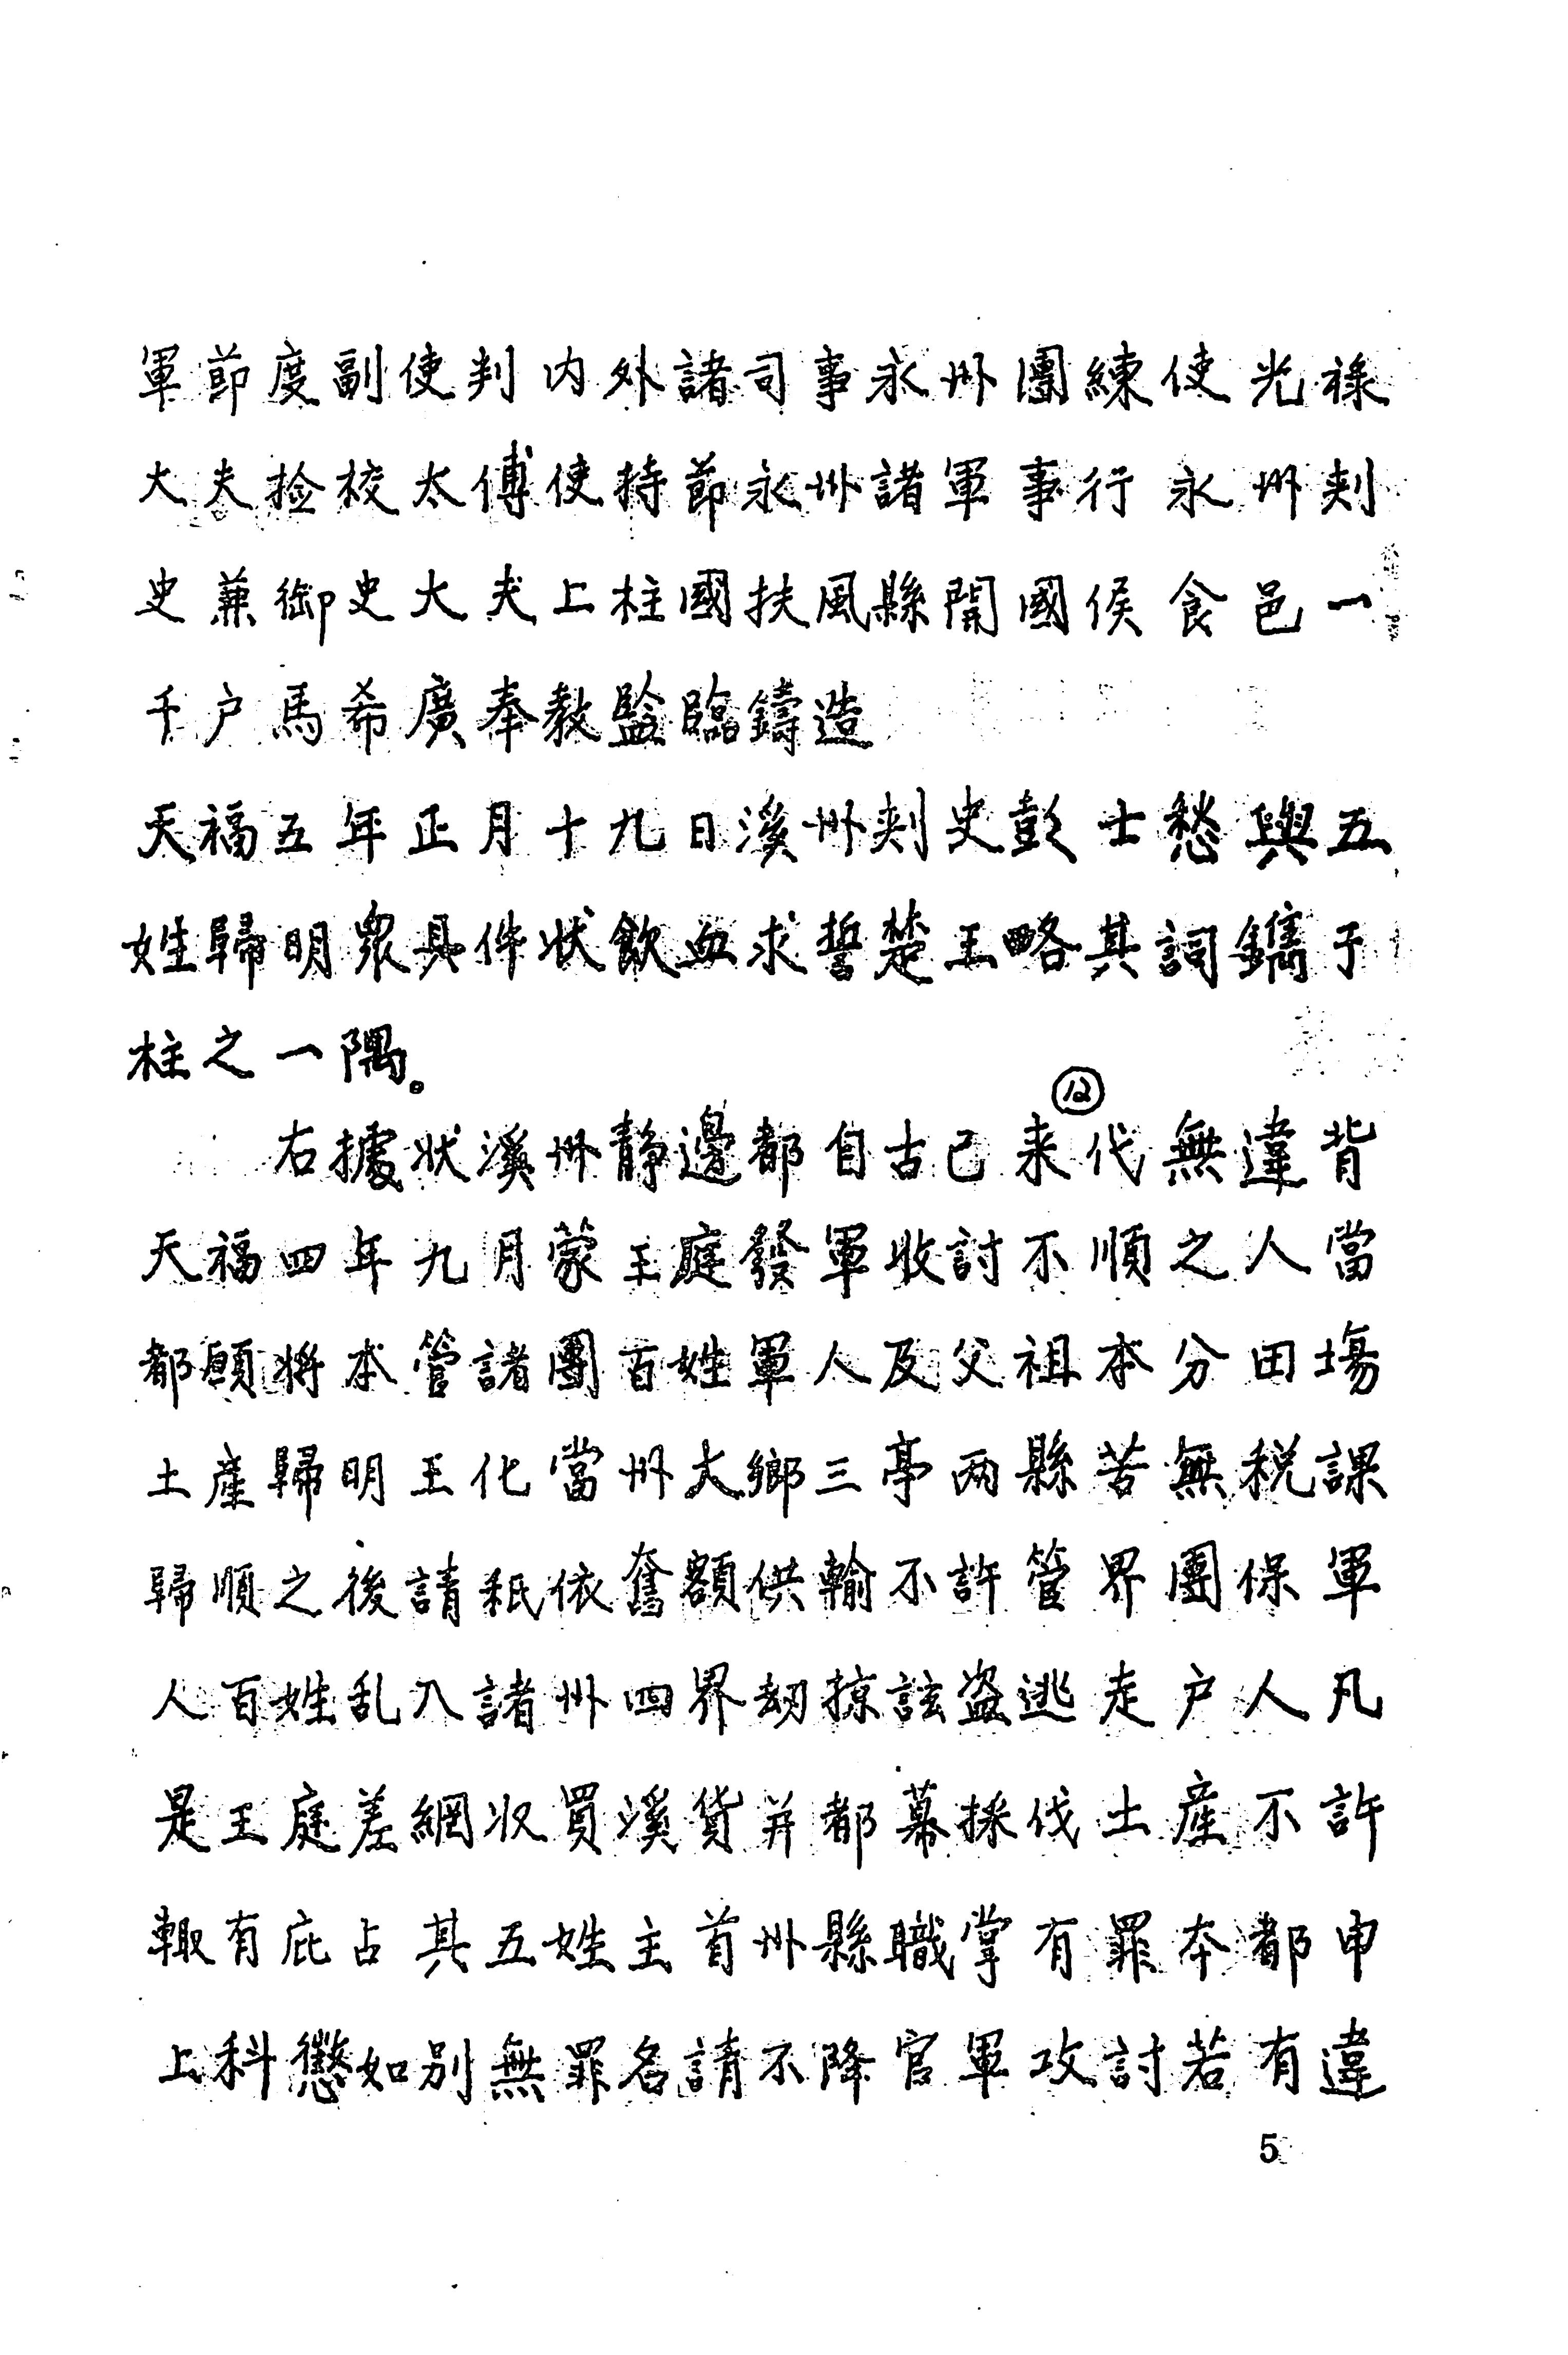 軍節度副使判内外諸司事永州團練使光祿
大夫捡校太傅使持節永州諸軍事行永州刾
史兼御史大夫上柱國扶風縣開國侯食邑一
千户馬希廣奉教監臨鑄造
天福五年正月十九日溪州刾史彭士愁與五
姓歸明眾具件狀飲血求誓楚王略其詞鐫于
柱之一隅。
右據狀溪州静邊都自古已来⑫代無違背
天福四年九月蒙王庭發軍收討不順之人當
都願将本管諸團百姓軍人及父祖本分田塲
土產歸明王化當州大鄉三亭两縣苦無税課
歸順之後請秖依舊額供輸不許管界團保軍
人百姓乱入諸州四界劫掠詃盗逃走户人凡
是王庭差網収買溪貨并都幕採伐土產不許
輙有庇占其五姓主首州縣職掌有罪本都申
上科懲如別無罪名請不降官軍攻討若有違
5